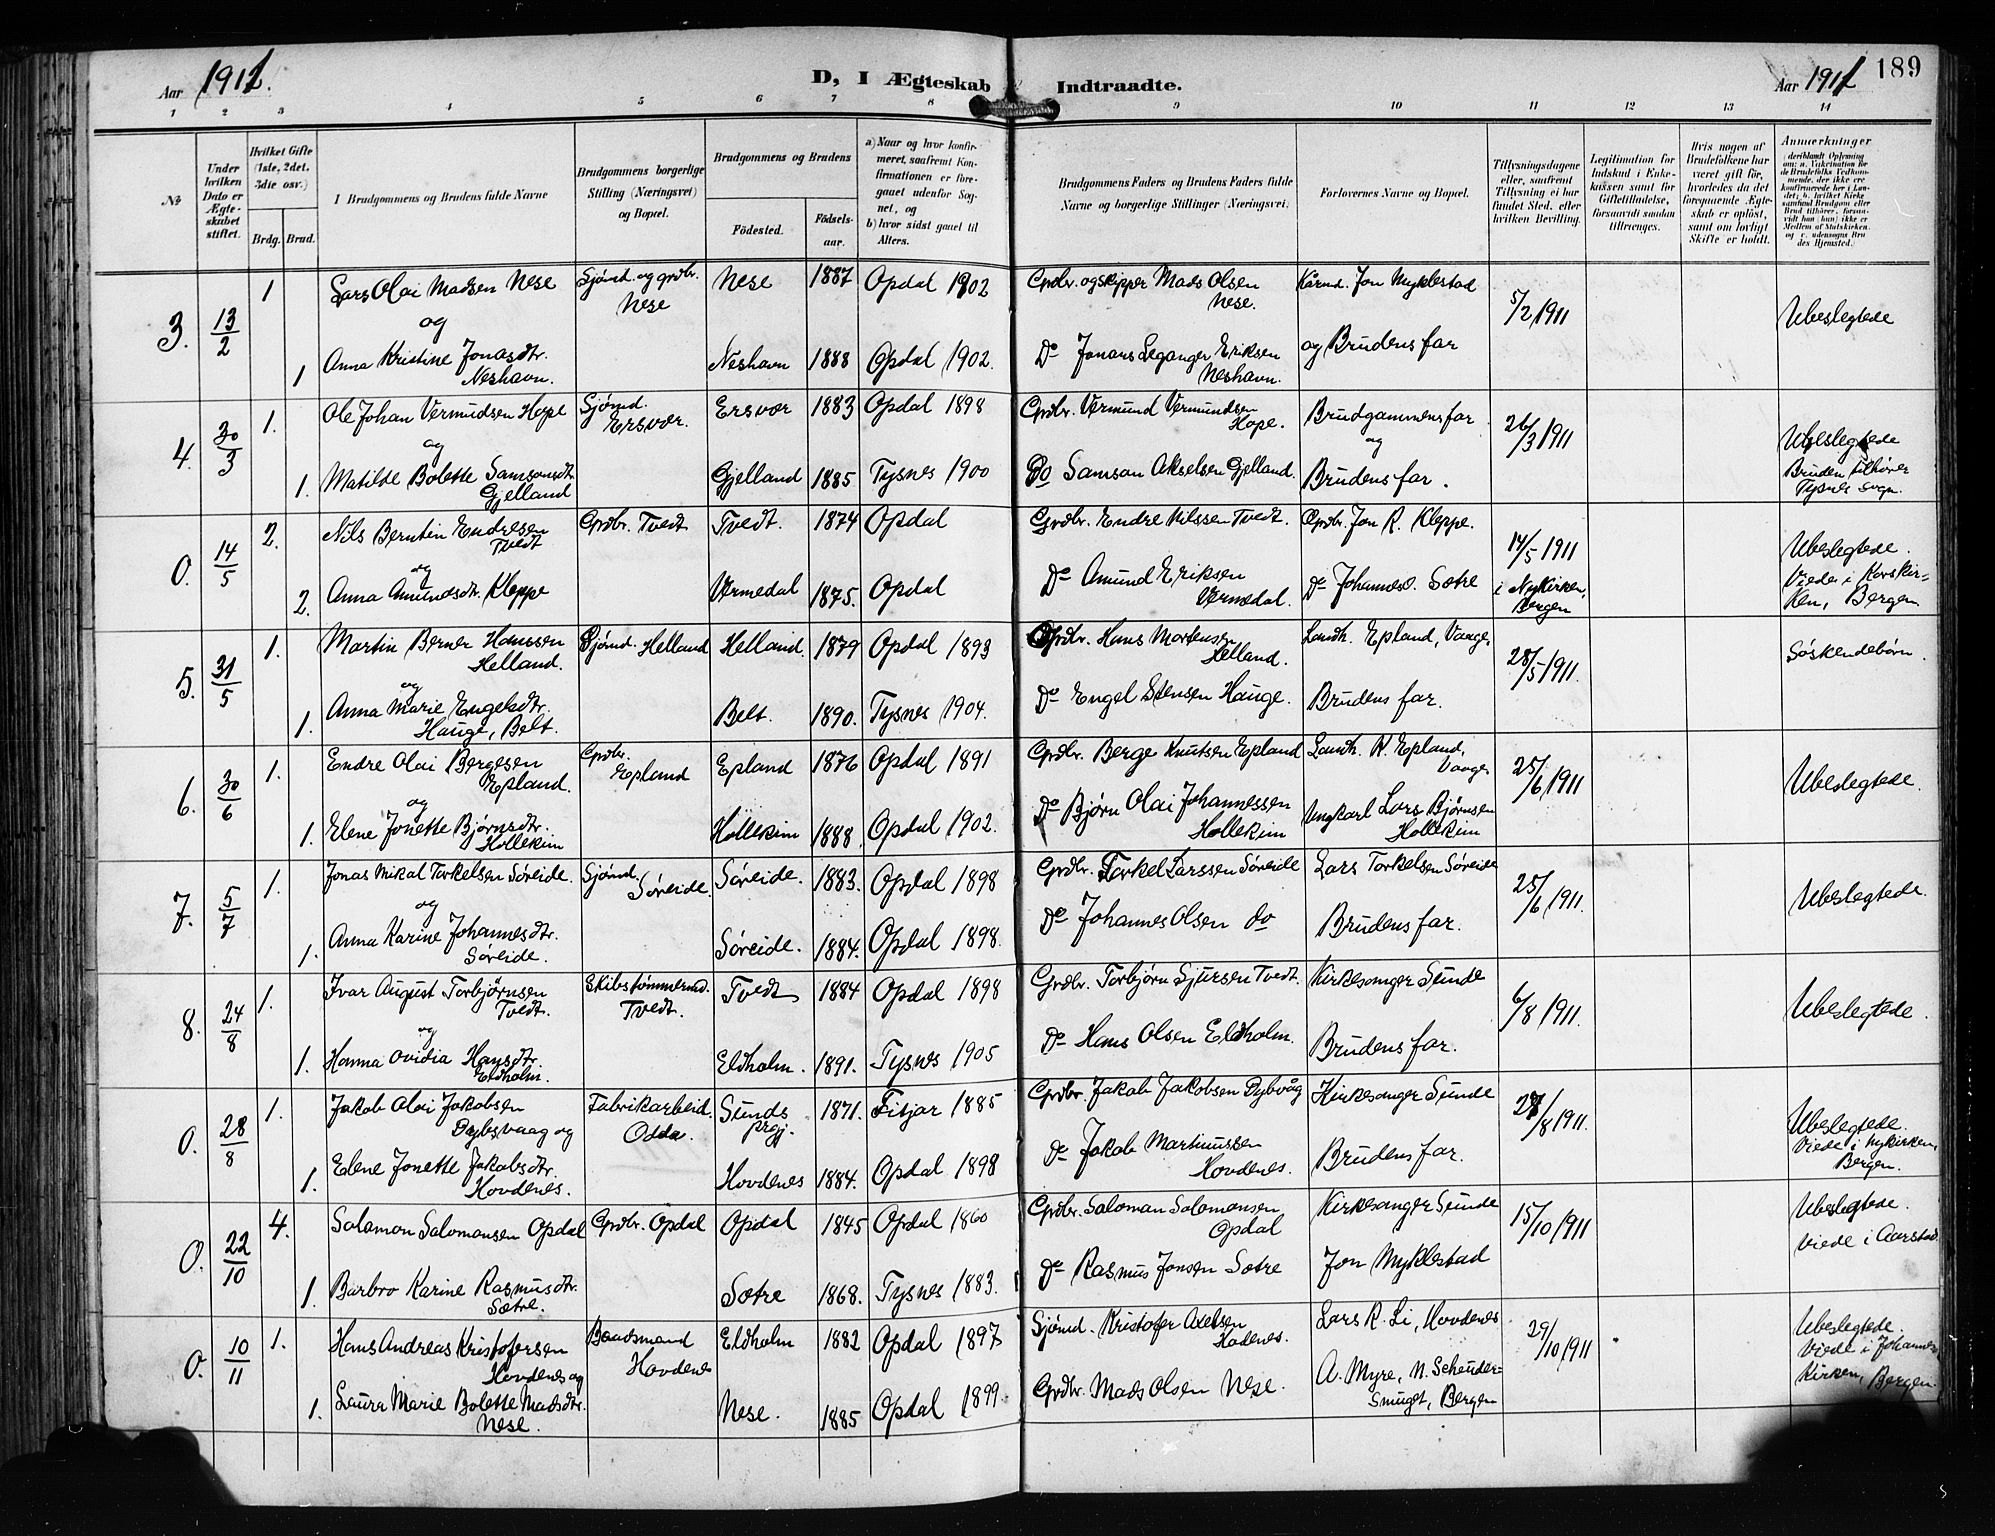 Aar 1911.
D, I Ægteskab Indtraadte.
Aar 1911
189
1 2 3 4 5 6 7 8 9 10 11 12 13 14
№
Under hvilken Dato er Ægteskabet stiftet.
Hvilket Gifte (1ste, 2det, 3die osv.)
Brdg. Brud.
I Brudgommens og Brudens fulde Navne
Brudgommens borgerlige Stilling (Næringsvei) og Bopæl.
Brudgommens og Brudens
Födested. Födselsaar.
a) Naar og hvor konfirmeret, saafremt Konfirmationen er foregaaet udenfor Sognet, og
b) hvor sidst gaaet til Alters.
Brudgommens Faders og Brudens Faders fulde Navne og borgerlige Stillinger (Næringsvei)
Forlovernes Navne og Bopæl.
Tillysningsdagene eller, saafremt Tillysning ei har fundet Sted, efter hvilken Bevilling.
Legitimation for Indskud i Enkekassen samt for Giftetilladelse, forsaavidt saadan tiltrænges.
Hvis nogen af Brudefolkene har været gift för, hvorledes da det foregaaende Ægteskab er oplöst, samt om lovligt Skifte er holdt.
Anmærkninger
3. 13/2 1 Lars Olai Madsen Nese Sjömd. og grdbr. Nese Nese 1887 Opdal 1902 Grdbr. og skipper Mads Olsen Nese. Kårmd. Jon Myklestad 5/2 1911 Ubeslegtede
og
1 Anna Kristine Jonasdtr. Neshavn. Neshavn 1888 Opdal 1902. Do Jonars Leganger Eriksen Neshavn. og Brudens far
4. 30/3 1. Ole Johan Vermundsen Hope Sjömd. Ersvær. Ersvær 1883 Opdal 1898 Grdbr. Vermund Vermundsen Hope. Brudgommens far 26/3 1911 Ubeslegtede
og og
1. Matilde Bolette Samsonsdtr. Gjelland Gjelland 1885 Tysnes 1900 Do Samson Akselsen Gjelland. Brudens far. Bruden tilhörer Tysnes sogn.
0. 14/5 2. Nils Berntin Endresen Tvedt Grdbr. Tvedt Tvedt. 1874 Opdal Grdbr. Endre Nilssen Tvedt. Grdbr. Jon R. Kleppe. 14/5 1911 Ubeslegtede.
og
2. Anna Amundsdtr. Kleppe Vermedal 1875. Opdal Do Amund Eriksen Vermedal. Do Johannes O. Sætre i Nykirken, Bergen Viede i Korskirken, Bergen
5. 31/5 1. Martin Berner Hanssen Helland. Sjömd. Helland Helland. 1879 Opdal 1893 Grdbr. Hans Mortensen Helland. Landh. Epland, Vaage. 28/5 1911. Söskendebörn.
og
1. Anna Marie Engelsdtr. Hauge, Belt. Belt. 1890. Tysnes 1904. Do Engel Stensen Hauge. Brudens far.
6. 30/6 1. Endre Olai Bergesen Epland. Grdbr. Epland Epland 1876 Opdal 1891 Grdbr. Berge Knutsen Epland Landh. R. Epland, Vaage 25/6 1911 Ubeslegtede.
og
1. Elene Jonette Björnsdtr. Hollekim Hollekim 1888. Opdal 1902. Do Björn Olai Johannessen Hollekim Ungkarl Lars Björnsen Hollekim
7. 5/7 1. Jonas Mikal Torkelsen Söreide. Sjömd. Söreide Söreide. 1883. Opdal 1898 Grdbr. Torkel Larssen Söreide Lars Torkelsen Söreide 25/6 1911. Ubeslegtede.
og
1. Anna Karine Johannesdtr. Söreide. Söreide. 1884. Opdal 1898. Do Johannes Olsen do Brudens far.
8. 24/8 1. Ivar August Torbjörnsen Tvedt. Skibstömmermd. Tvedt. Tvedt 1884 Opdal 1898 Grdbr. Torbjörn Sjursen Tvedt. Kirkesanger Sunde 6/8 1911. Ubeslegtede.
og
1. Hanna Ovidia Hansdtr. Eldholm. Eldholm. 1891. Tysnes 1905 Do Hans Olsen Eldholm. Brudens far.
0. 28/8 1. Jakob Olai Jakobsen Dybsvaag og Fabrikarbeid. Odda. Sunds prgj. 1871. Fitjar 1885 Grdbr. Jakob Jakobsen Dybvåg Kirkesanger Sunde 27/8 1911. Ubeslegtede.
1. Elene Jonette Jakobsdtr. Hovdenes. Hovdenes 1884. Opdal 1898 Do Jakob Martinussen Hovdenes. Brudens far. Viede i nykirken, Bergen.
0. 22/10 4. Salamon Salomonsen Opdal Grdbr. Opdal Opdal 1845 Opdal 1860 Grdbr. Saloman Salomonsen Opdal Kirkesanger Sunde 15/10 1911 Ubeslegtede.
1. Barbro Karine Rasmusdtr. Sætre. Sætre 1868. Tysnes 1883. Do Rasmus Jonsen Sætre Jon Myklestad Viede i Aarstad.
0. 10/11 1. Hans Andreas Kristofersen Hovdenes og Baadsmand Hovdenes Eldholm 1882 Opdal 1897 Sjömd. Kristofer Axelsen Hodenes. Lars R. Li, Hovdenes 29/10 1911 Ubeslegtede.
1. Laura Marie Bolette Madsdtr. Nese. Nese. 1885 Opdal 1899. Grdbr. Mads Olsen Nese. A. Myre, N. Scheudersmuget, Bergen Viede i Johannes kirken, Bergen.